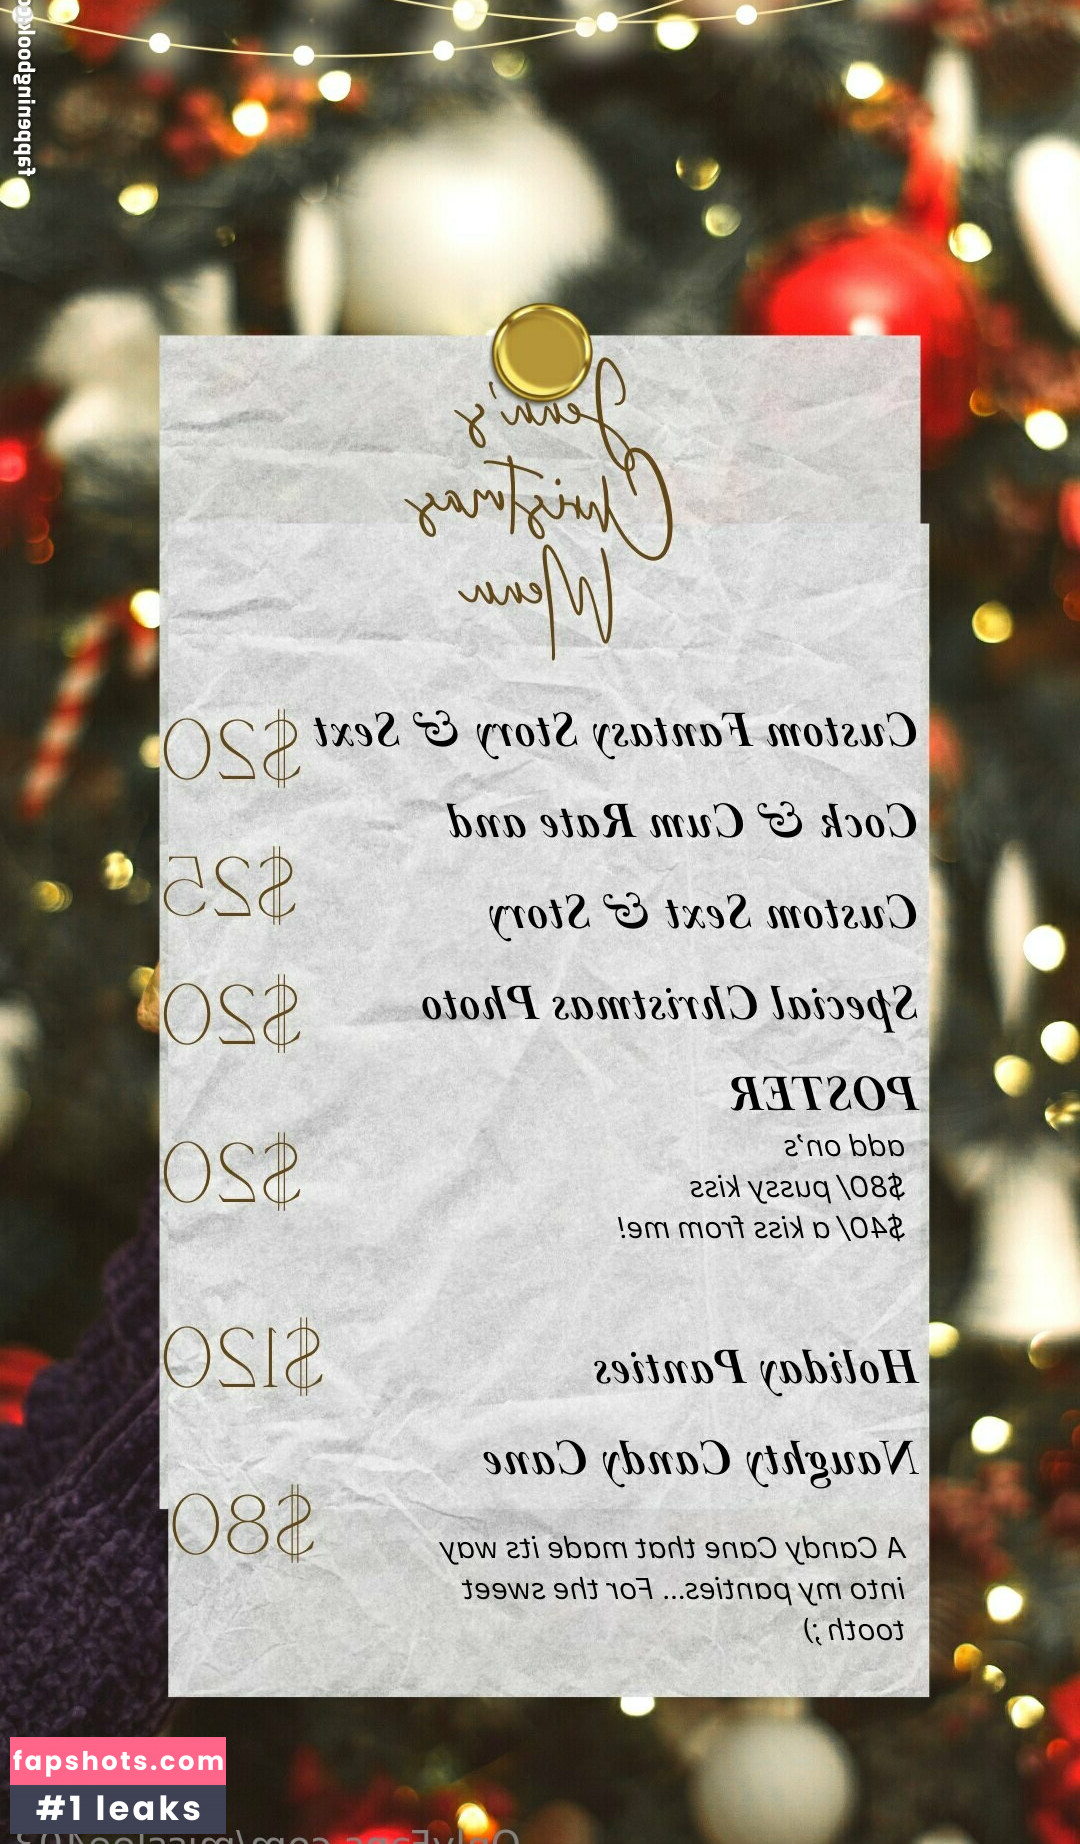 fappeningbook.com
Jenn's
Christmas
Menu
Custom Fantasy Story & Sext $20
Cock & Cum Rate and
Custom Sext & Story $25
Special Christmas Photo $20
POSTER $20
add on's
$80/ pussy kiss
$40/ a kiss from me!
Holiday Panties $120
Naughty Candy Cane $80
A Candy Cane that made its way
into my panties... For the sweet
tooth ;)
fapshots.com
#1 leaks